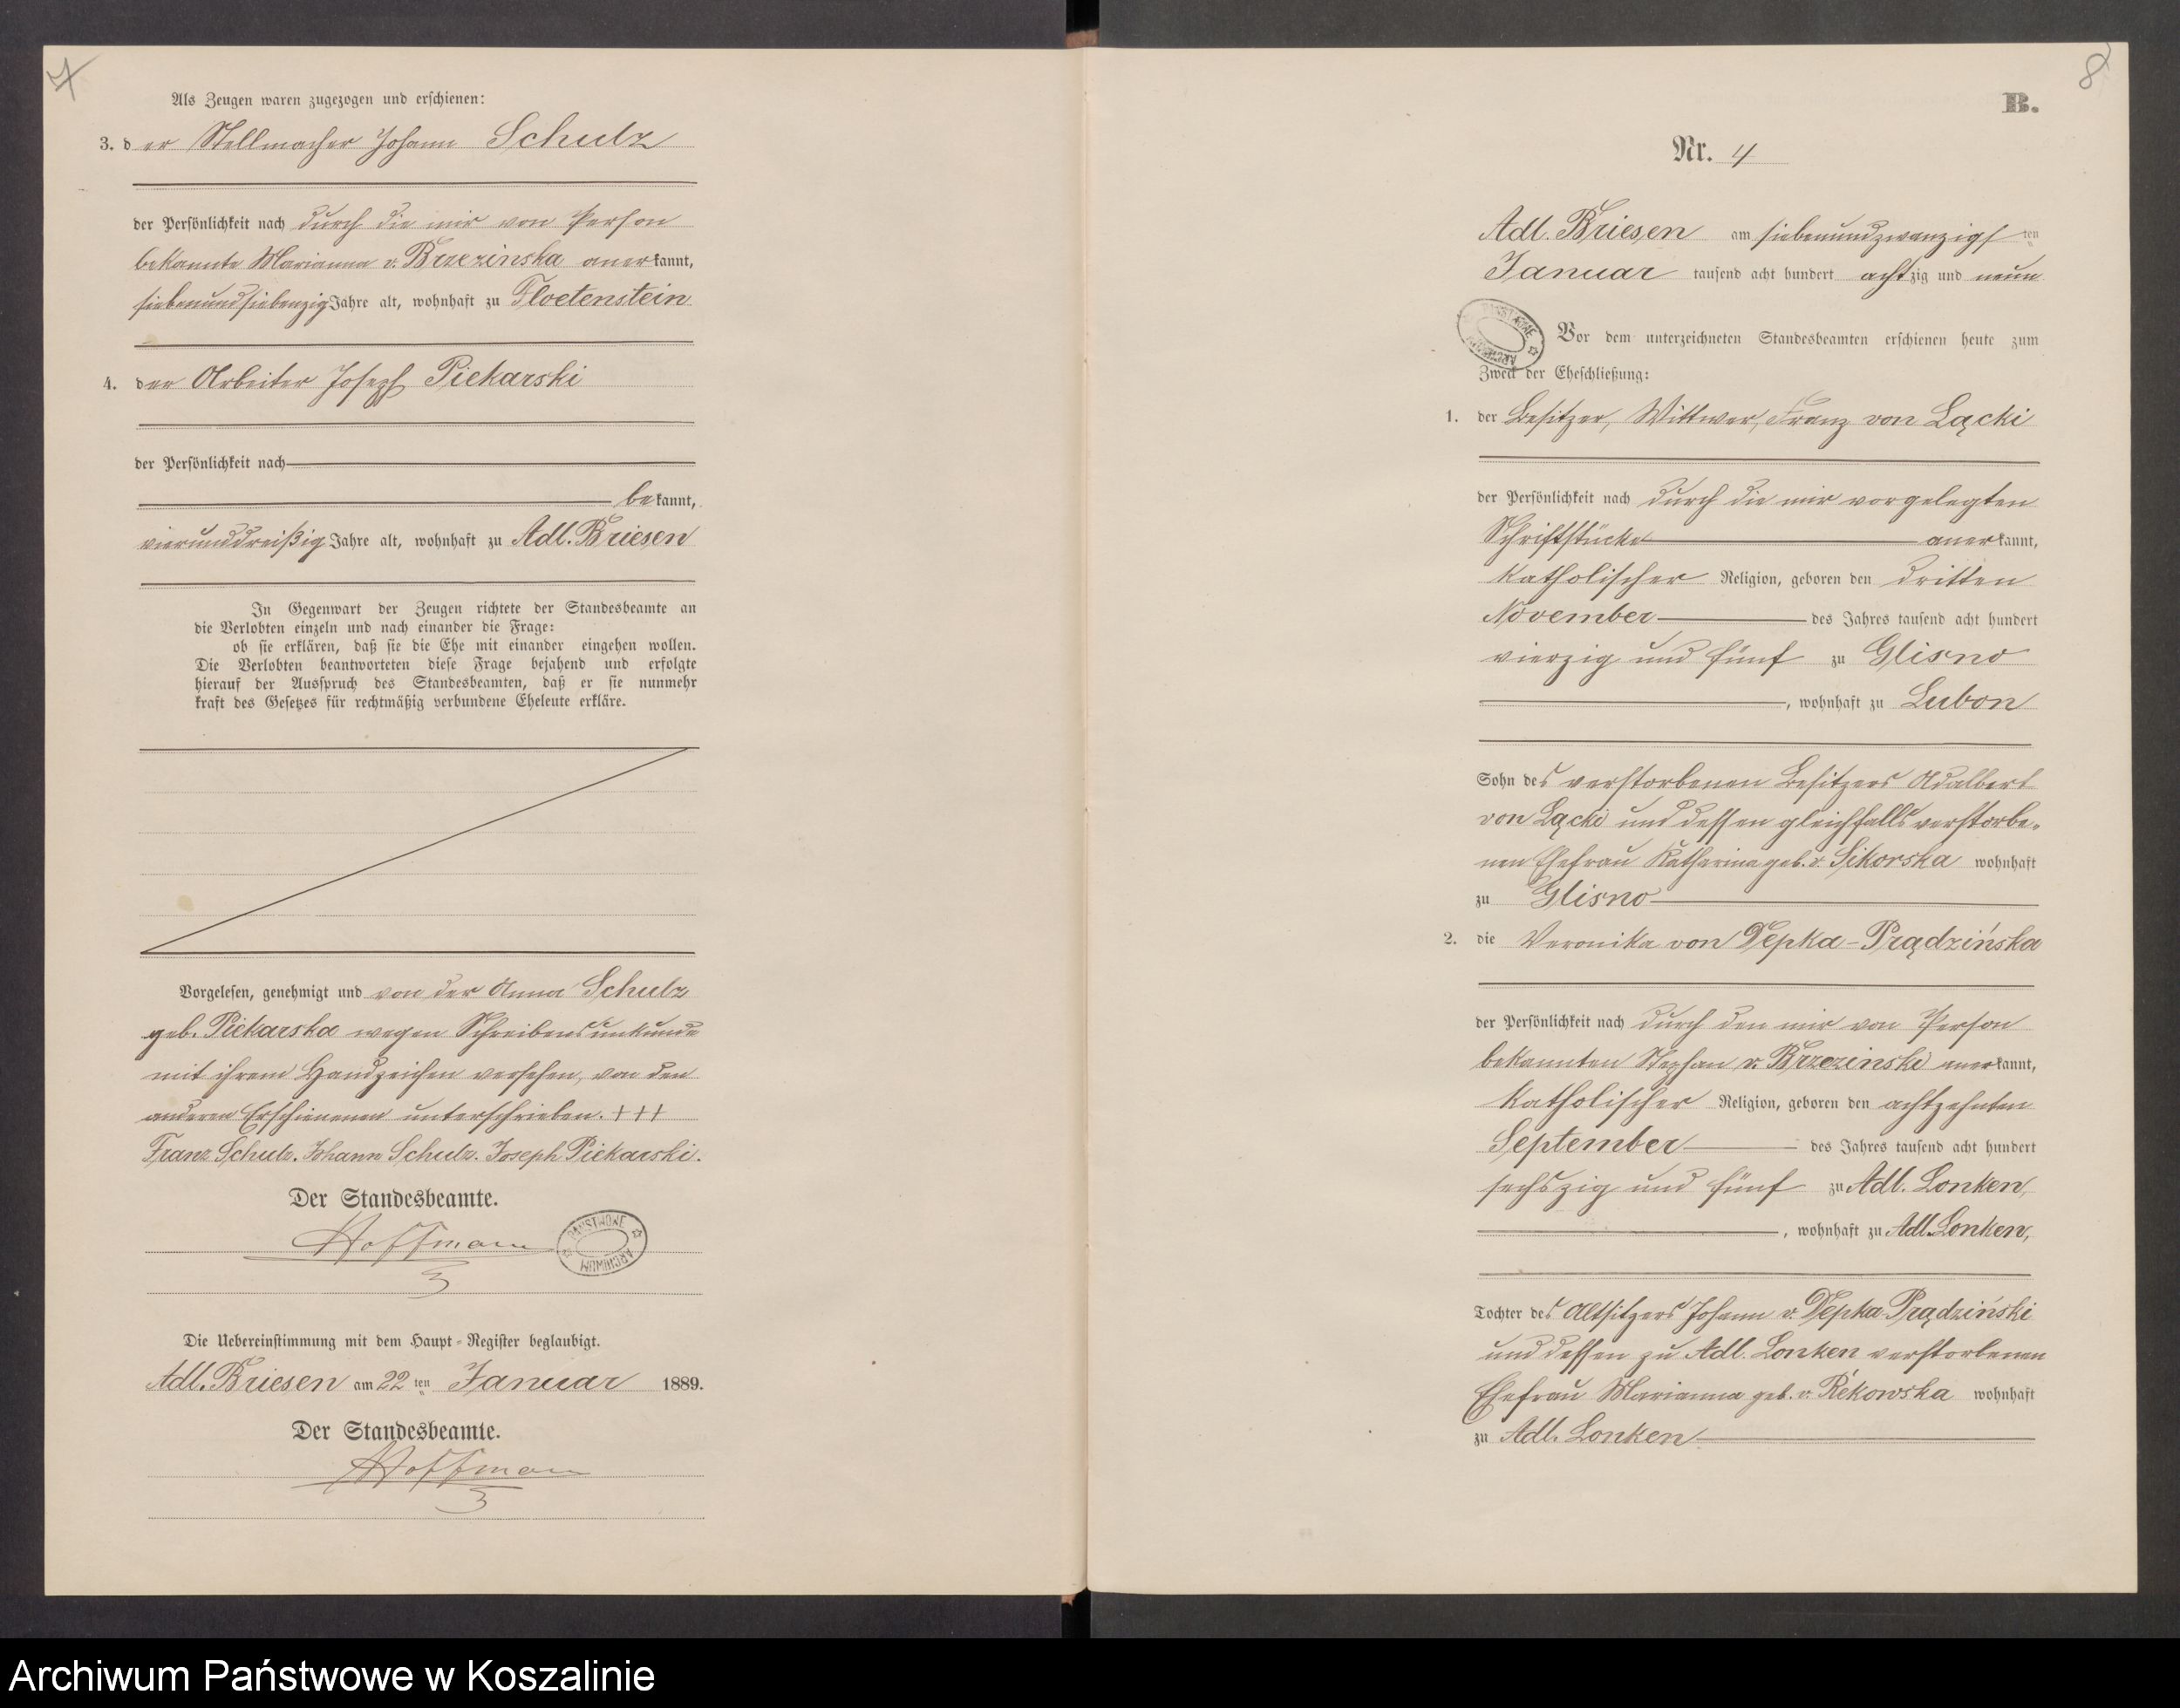 7
Als Zeugen waren zugezogen und erschienen:
3. der Stellmacher Johann Schulz
der Persönlichkeit nach durch die mir von Person
bekannte Marianna v. Brzezinska anerkannt,
siebenundsiebenzig Jahre alt, wohnhaft zu Floetenstein
4. der Arbeiter Joseph Piekarski
der Persönlichkeit nach
bekannt,
vierunddreißig Jahre alt, wohnhaft zu Adl. Briesen
In Gegenwart der Zeugen richtete der Standesbeamte an
die Verlobten einzeln und nach einander die Frage:
ob sie erklären, daß sie die Ehe mit einander eingehen wollen.
Die Verlobten beantworteten diese Frage bejahend und erfolgte
hierauf der Ausspruch des Standesbeamten, daß er sie nunmehr
kraft des Gesetzes für rechtmäßig verbundene Eheleute erkläre.
Vorgelesen, genehmigt und von der Anna Schulz
geb. Piekarska wegen Schreibensunkunde
mit ihrem Handzeichen versehen, von den
anderen Erschienenen unterschrieben. +++
Franz Schulz. Johann Schulz. Joseph Piekarski.
Der Standesbeamte.
Hoffmann
PAŃSTWOWE ARCHIWUM
Die Uebereinstimmung mit dem Haupt-Register beglaubigt.
Adl. Briesen am 22ten Januar 1889.
Der Standesbeamte.
Hoffmann
8
B.
Nr. 4
Adl. Briesen am siebenundzwanzigsten
Januar tausend acht hundert achtzig und neun
PAŃSTWOWE ARCHIWUM
Vor dem unterzeichneten Standesbeamten erschienen heute zum
Zweck der Eheschließung:
1. der Besitzer, Wittwer, Franz von Lącki
der Persönlichkeit nach durch die mir vorgelegten
Schriftstücke anerkannt,
katholischer Religion, geboren den dritten
November des Jahres tausend acht hundert
vierzig und fünf zu Glisno
, wohnhaft zu Lubon
Sohn des verstorbenen Besitzers Adalbert
von Lącki und dessen gleichfalls verstorbe-
nen Ehefrau Katharina geb. v. Sikorska wohnhaft
zu Glisno
2. die Veronika von Depka-Prądzińska
der Persönlichkeit nach durch den mir von Person
bekannten Stephan v. Brzezinski anerkannt,
katholischer Religion, geboren den achtzehnten
September des Jahres tausend acht hundert
sechszig und fünf zu Adl. Lonken,
, wohnhaft zu Adl. Lonken,
Tochter des Altsitzers Johann v. Depka-Prądziński
und dessen zu Adl. Lonken verstorbenen
Ehefrau Marianna geb. v. Rekowska wohnhaft
zu Adl. Lonken
Archiwum Państwowe w Koszalinie